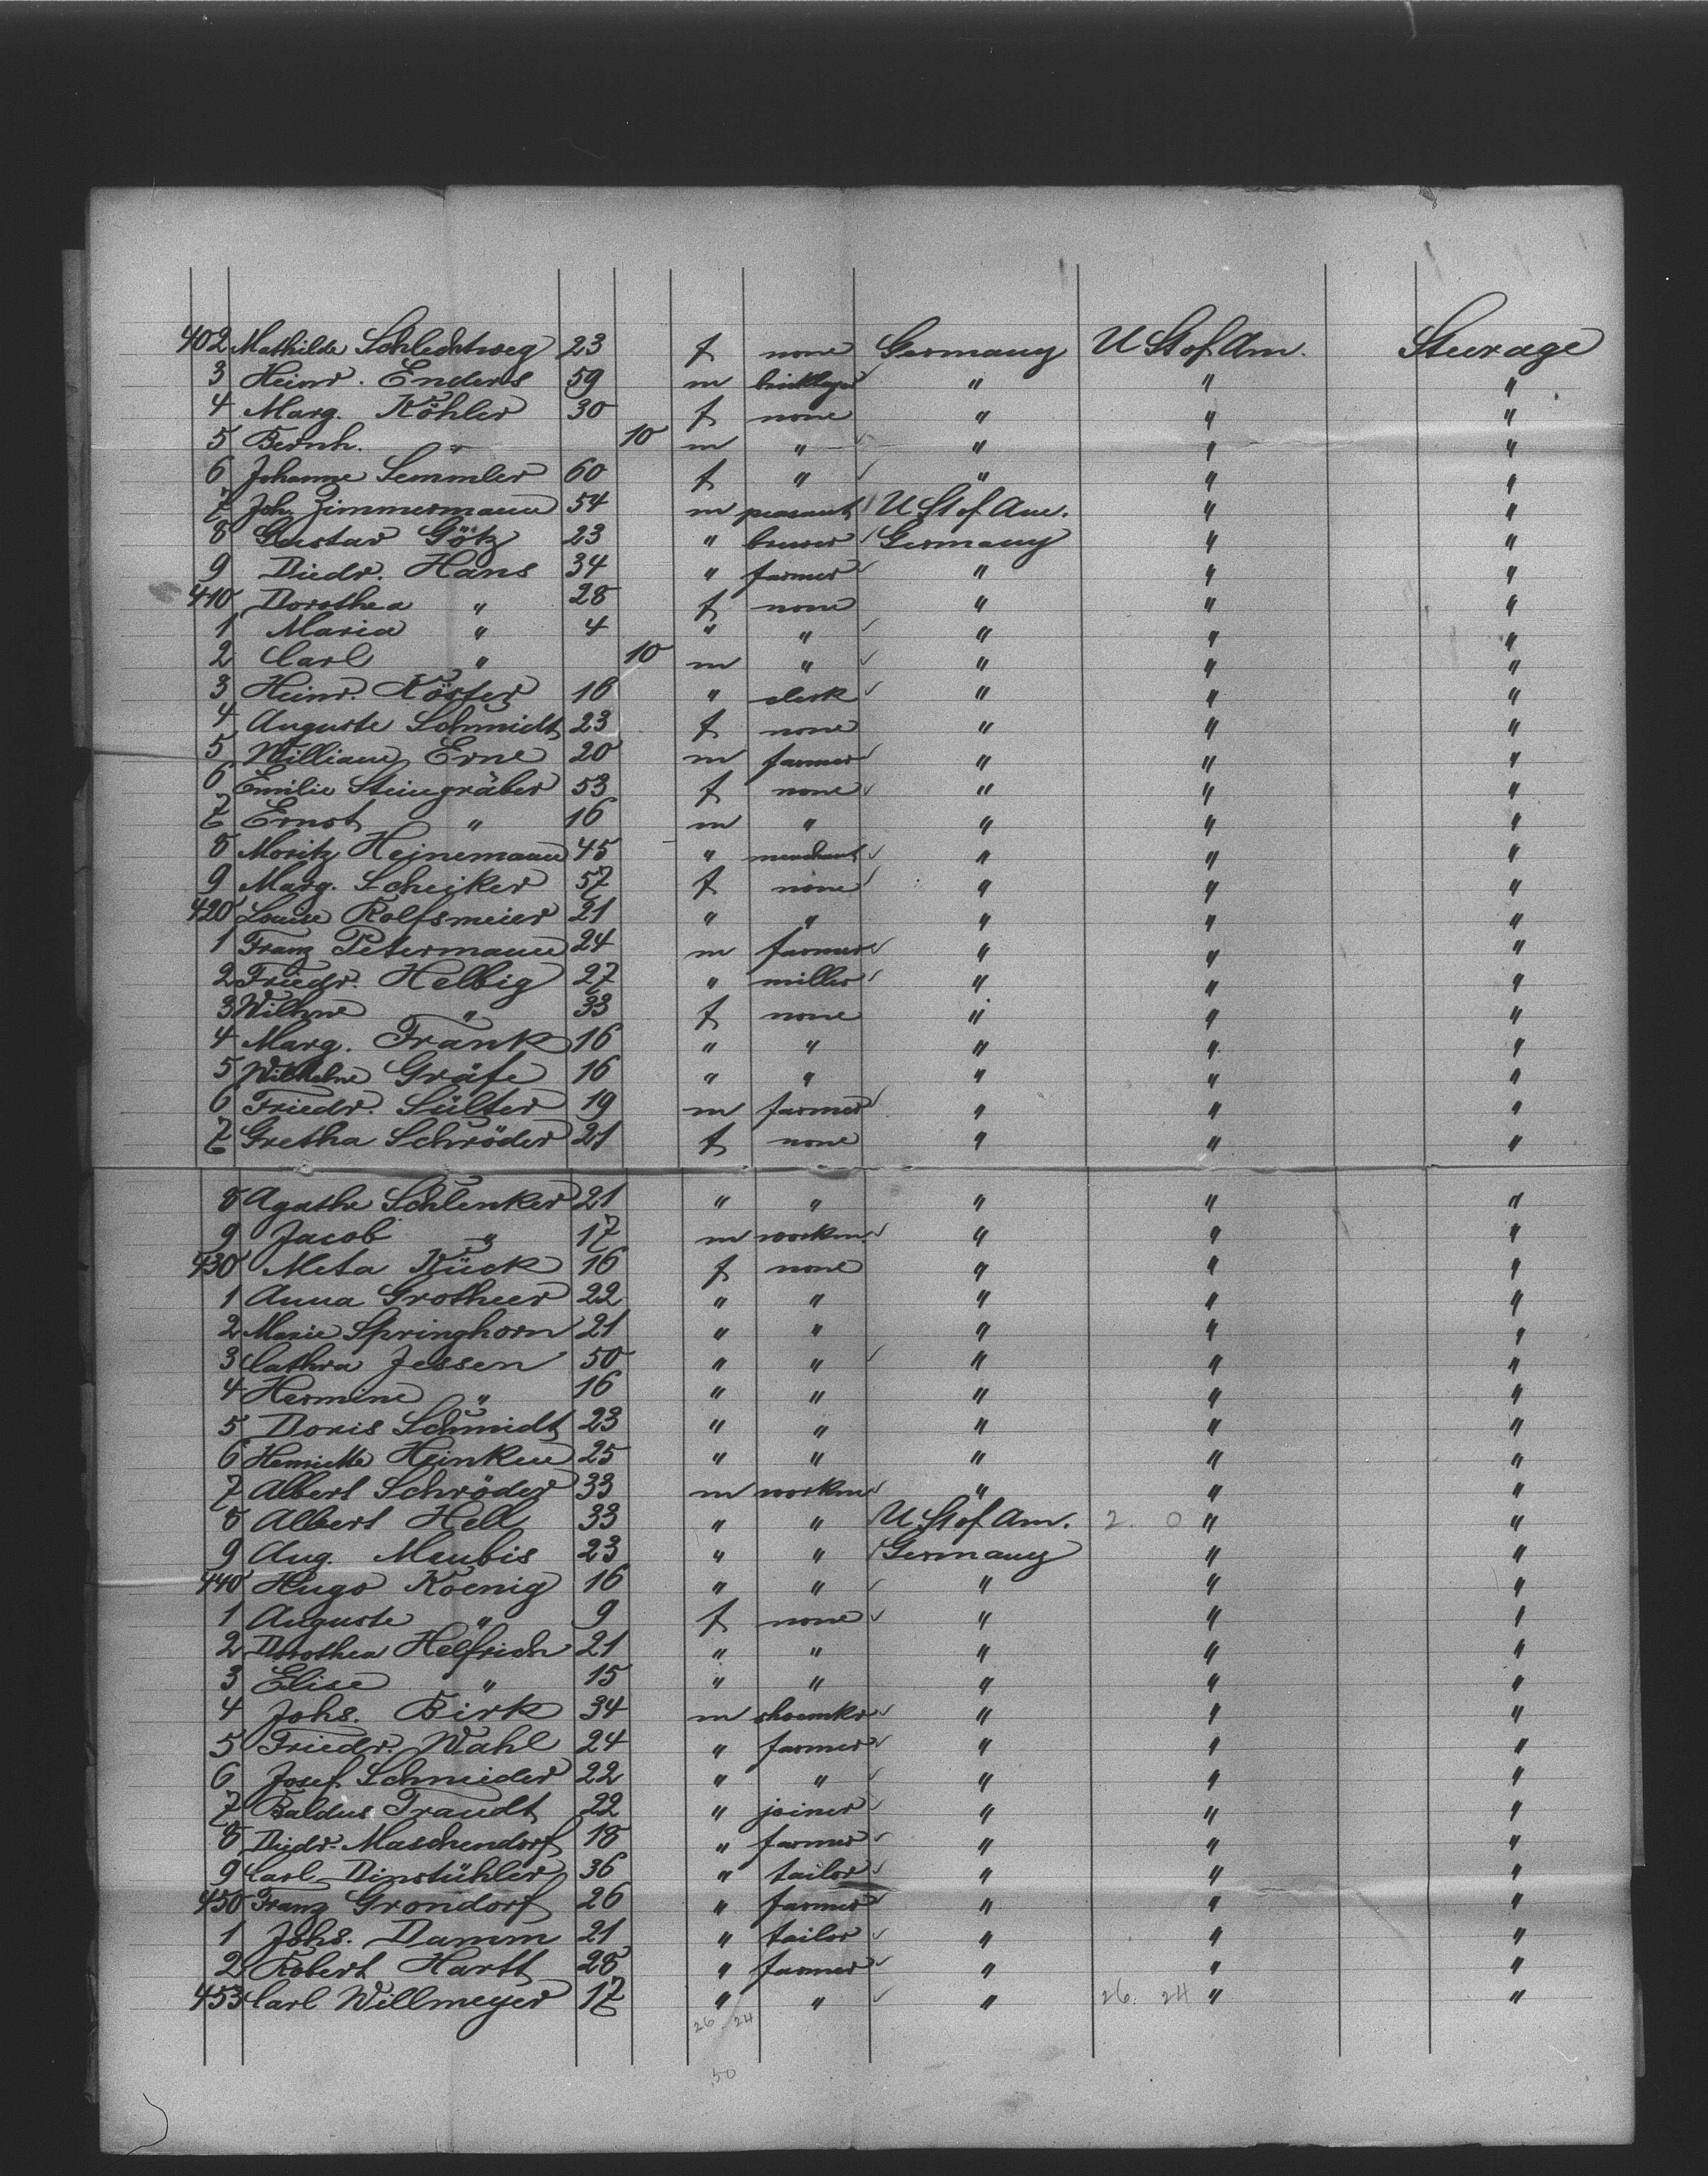 402 Mathilde Schlechtweg 23 f none Germany U St of Am. Steerage
3 Heinr. Enders 59 m bricklayer " " "
4 Marg. Köhler 30 f none " " "
5 Bernh. " 10 m " " " "
6 Johanne Semmler 60 f " " " "
7 Joh. Zimmermann 54 m peasant U St of Am. " "
8 Gustav Götz 23 " brewer Germany " "
9 Diedr. Hans 34 " farmer " " "
410 Dorothea " 28 f none " " "
1 Maria " 4 " " " " "
2 Carl " 10 m " " " "
3 Heinr. Köster 16 " clerk " " "
4 Auguste Schmidt 23 f none " " "
5 William Erne 20 m farmer " " "
6 Emilie Steingräber 53 f none " " "
7 Ernst " 16 m " " " "
8 Moritz Heinemann 45 " merchant " " "
9 Marg. Scheiker 57 f none " " "
420 Louise Rolfsmeier 21 " " " " "
1 Franz Petermann 24 m farmer " " "
2 Friedr. Helbig 27 " miller " " "
3 Wilhne " 33 f none " " "
4 Marg. Frank 16 " " " " "
5 Wilhelne Gräfe 16 " " " " "
6 Friedr. Sülter 19 m farmer " " "
7 Gretha Schröder 21 f none " " "
8 Agathe Schlenker 21 " " " " "
9 Jacob " 17 m workm. " " "
430 Meta Kück 16 f none " " "
1 Anna Grotheer 22 " " " " "
2 Marie Springhorn 21 " " " " "
3 Cathra Jessen 50 " " " " "
4 Hermine " 16 " " " " "
5 Doris Schmidt 23 " " " " "
6 Henriette Heinken 25 " " " " "
7 Albert Schröder 33 m workm " " "
8 Albert Hell 33 " " U St of Am. 2. 0 " "
9 Aug. Meubis 23 " " Germany " "
440 Hugo Koenig 16 " " " " "
1 Auguste " 9 f none " " "
2 Dorothea Helfrich 21 " " " " "
3 Elise " 15 " " " " "
4 Johs. Birk 34 m shoemkr " " "
5 Friedr. Wahl 24 " farmer " " "
6 Josef Schneider 22 " " " " "
7 Baldus Traudt 22 " joiner " " "
8 Diedr. Maschendorf 18 " farmer " " "
9 Carl Dinstühler 36 " tailor " " "
450 Franz Grondorf 26 " farmer " " "
1 Johs. Damm 21 " tailor " " "
2 Robert Hartt 28 " farmer " " "
453 Carl Willmeyer 17 " " " 26. 24 " "
26 24
50